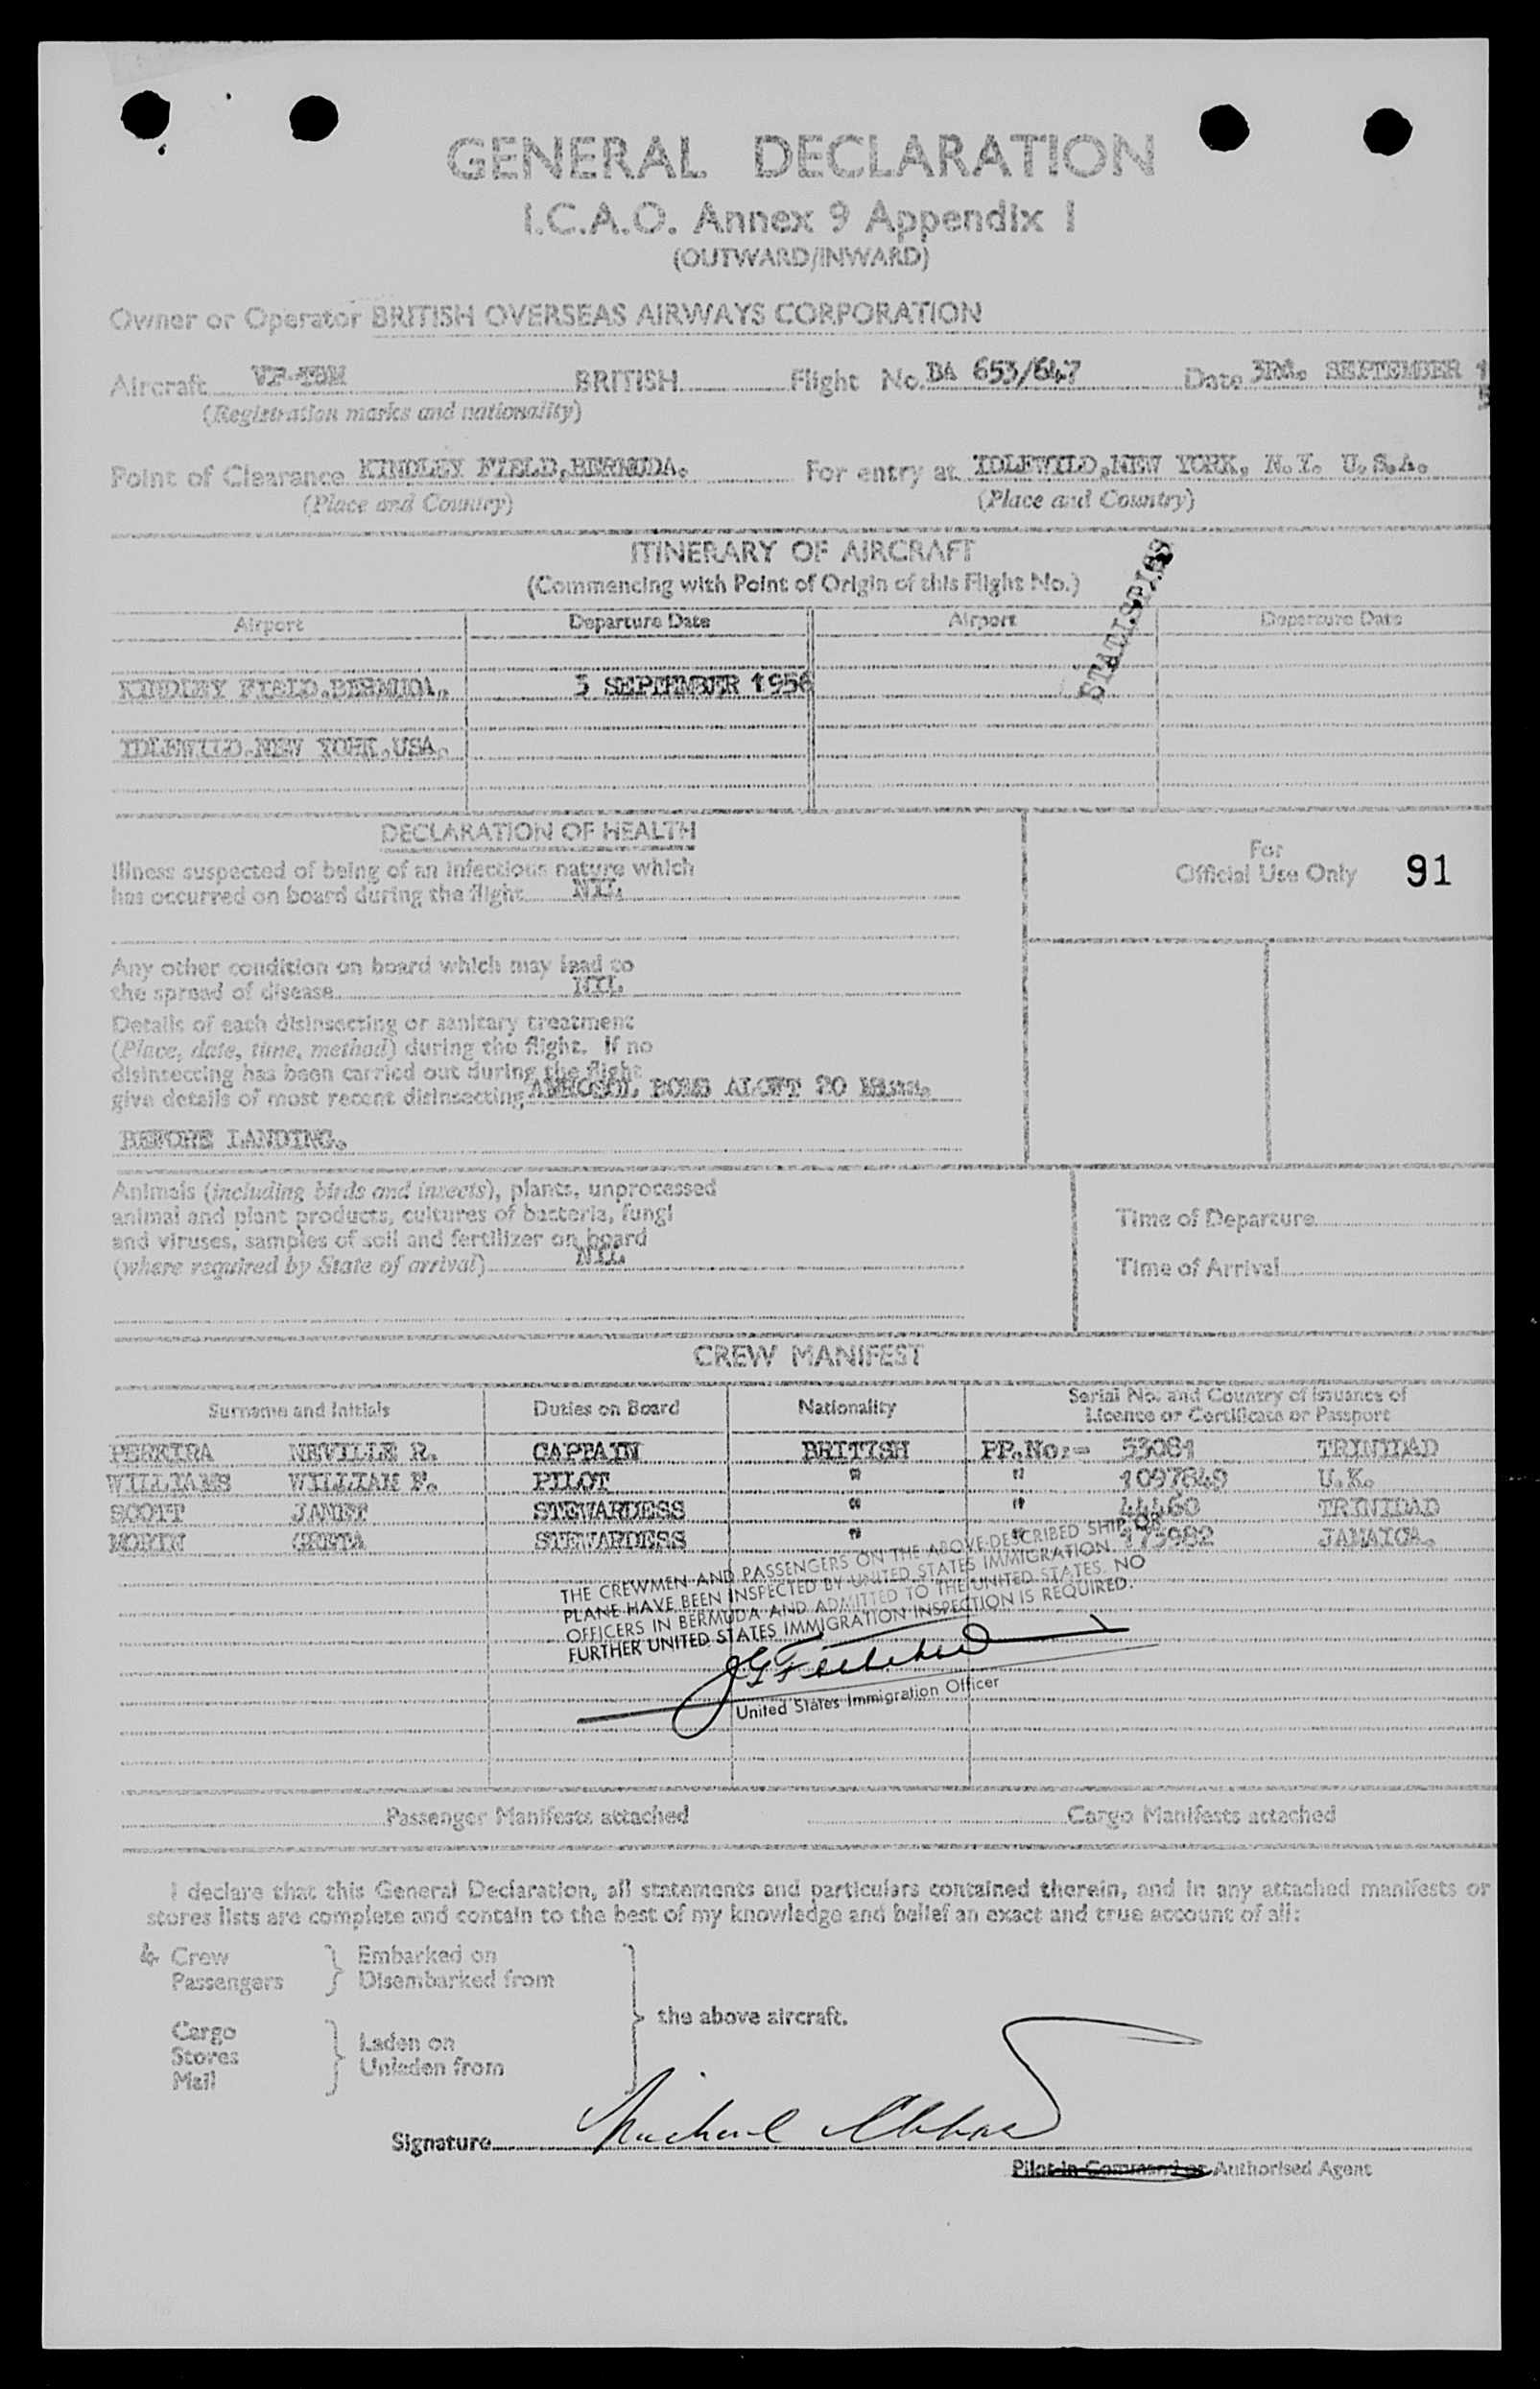 GENERAL DECLARATION
I.C.A.O. Annex 9 Appendix 1
(OUTWARD/INWARD)
Owner or Operator BRITISH OVERSEAS AIRWAYS CORPORATION
Aircraft BRITISH Flight No. BA 653/647 Date 3Rd. SEPTEMBER
(Registration marks and nationality)
Point of Clearance KINDLEY FIELD,BERMUDA. For entry at IDLEWILD,NEW YORK, N.Y. U.S.A.
(Place and Country) (Place and Country)
ITINERARY OF AIRCRAFT
(Commencing with Point of Origin of this Flight No.)
Airport Departure Date Airport Departure Date
KINDLEY FIELD,BERMUDA. 3 SEPTEMBER 1956
IDLEWILD,NEW YORK,USA.
DECLARATION OF HEALTH
Illness suspected of being of an infectious nature which
has occurred on board during the flight NIL
For
Official Use Only 91
Any other condition on board which may lead to
the spread of disease NIL
Details of each disinsecting or sanitary treatment
(Place, date, time, method) during the flight. If no
disinsecting has been carried out during the flight
give details of most recent disinsecting AEROSOL BOMB ALOFT 20 Mins.
BEFORE LANDING.
Animals (including birds and insects), plants, unprocessed
animal and plant products, cultures of bacteria, fungi
and viruses, samples of soil and fertilizer on board
(where required by State of arrival) NIL
Time of Departure
Time of Arrival
CREW MANIFEST
Surname and Initials Duties on Board Nationality Serial No. and Country of Issuance of
Licence or Certificate or Passport
PEREIRA NEVILLE R. CAPTAIN BRITISH PP.No:- 53081 TRINIDAD
WILLIAMS WILLIAM F. PILOT " " 1097849 U.K.
SCOTT JANET STEWARDESS " " 44460 TRINIDAD
STEWARDESS " " 173982 JAMAICA.
THE CREWMEN AND PASSENGERS ON THE ABOVE-DESCRIBED SHIP OR
PLANE HAVE BEEN INSPECTED BY UNITED STATES IMMIGRATION
OFFICERS IN BERMUDA AND ADMITTED TO THE UNITED STATES. NO
FURTHER UNITED STATES IMMIGRATION INSPECTION IS REQUIRED.
United States Immigration Officer
Passenger Manifests attached Cargo Manifests attached
I declare that this General Declaration, all statements and particulars contained therein, and in any attached manifests or
stores lists are complete and contain to the best of my knowledge and belief an exact and true account of all:
4 Crew Embarked on
Passengers Disembarked from
the above aircraft.
Cargo Laden on
Stores Unladen from
Mail
Signature Michael
Pilot in Command or Authorised Agent